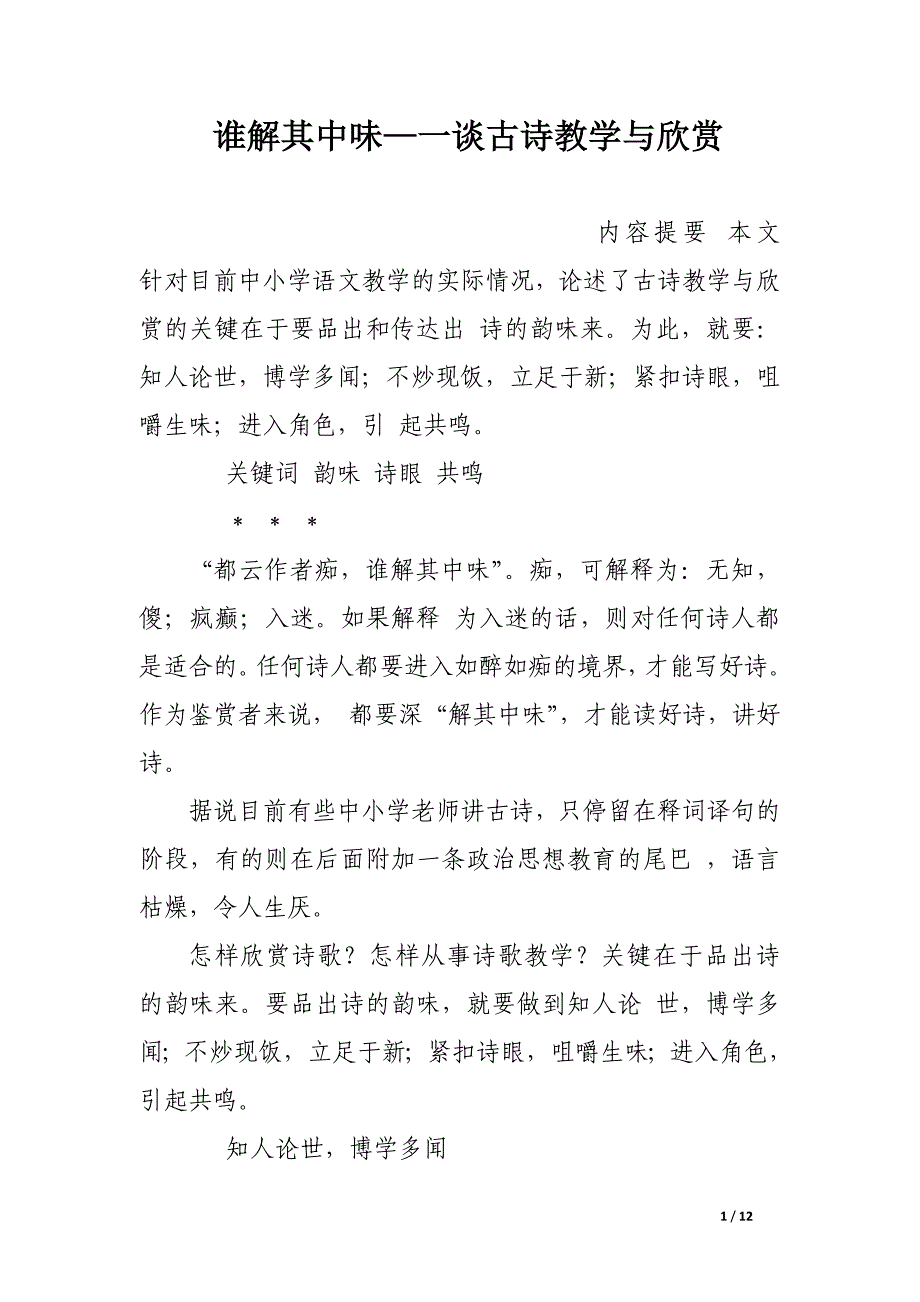 谁解其中味—一谈古诗教学与欣赏
内容提要 本文
针对目前中小学语文教学的实际情况，论述了古诗教学与欣
赏的关键在于要品出和传达出 诗的韵味来。为此，就要：
知人论世，博学多闻；不炒现饭，立足于新；紧扣诗眼，咀
嚼生味；进入角色，引 起共鸣。
关键词 韵味 诗眼 共鸣
* * *
“都云作者痴，谁解其中味”。痴，可解释为：无知，
傻；疯癫；入迷。如果解释 为入迷的话，则对任何诗人都
是适合的。任何诗人都要进入如醉如痴的境界，才能写好诗。
作为鉴赏者来说， 都要深“解其中味”，才能读好诗，讲好
诗。
据说目前有些中小学老师讲古诗，只停留在释词译句的
阶段，有的则在后面附加一条政治思想教育的尾巴 ，语言
枯燥，令人生厌。
怎样欣赏诗歌？怎样从事诗歌教学？关键在于品出诗
的韵味来。要品出诗的韵味，就要做到知人论 世，博学多
闻；不炒现饭，立足于新；紧扣诗眼，咀嚼生味；进入角色，
引起共鸣。
知人论世，博学多闻
1 / 12